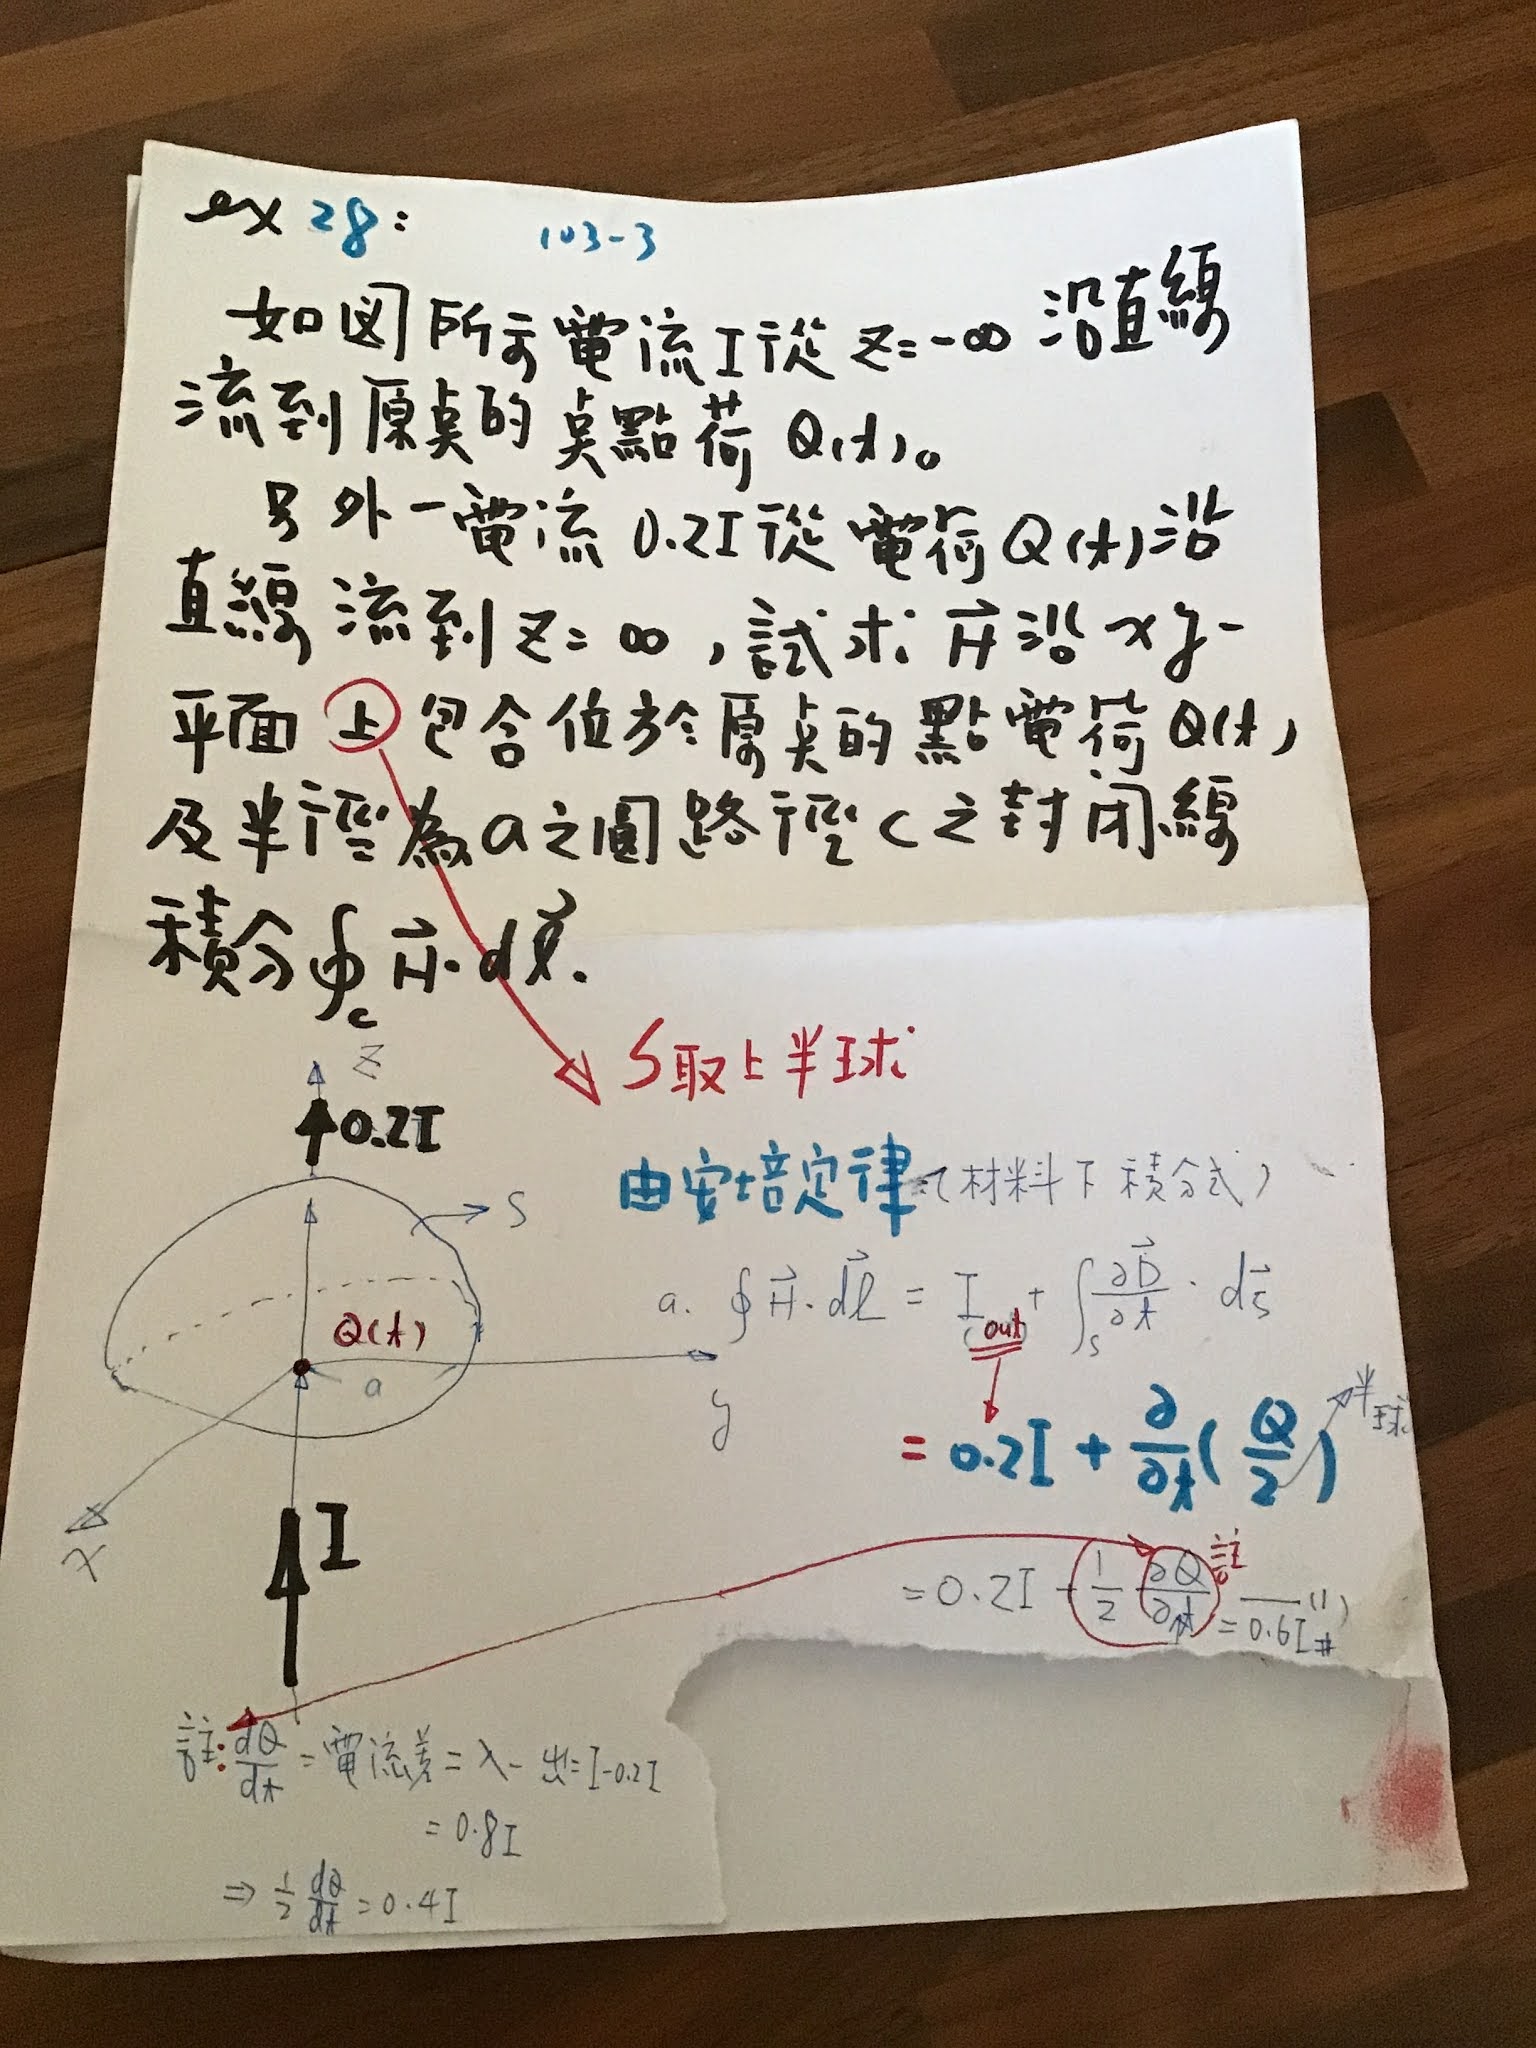 ex 28: 103-3
如図所示電流I從z=-∞ 沿直線
流到原點的點點荷 Q(t)。
另外一電流 0.2I從電荷Q(t)沿
直線流到z=∞,試求 H⃗沿xy-
平面上包含位於原點的點電荷Q(t)
及半徑為a之圓路徑c之封閉線
積分∮c H⃗·dℓ⃗.
S取上半球
z
0.2I
S
由安培定律(材料下積分式)
a. ∮H⃗·dℓ⃗ = I(out) + ∫s ∂D⃗/∂t · ds⃗
Q(t)
a
y
x
I
= 0.2I + ∂/∂t (Q/2) 半球
= 0.2I + 1/2 ∂Q/∂t 註 (1)
= 0.6I #
註: dQ/dt = 電流差 = 入-出 = I-0.2I
= 0.8I
⇒ 1/2 dQ/dt = 0.4I